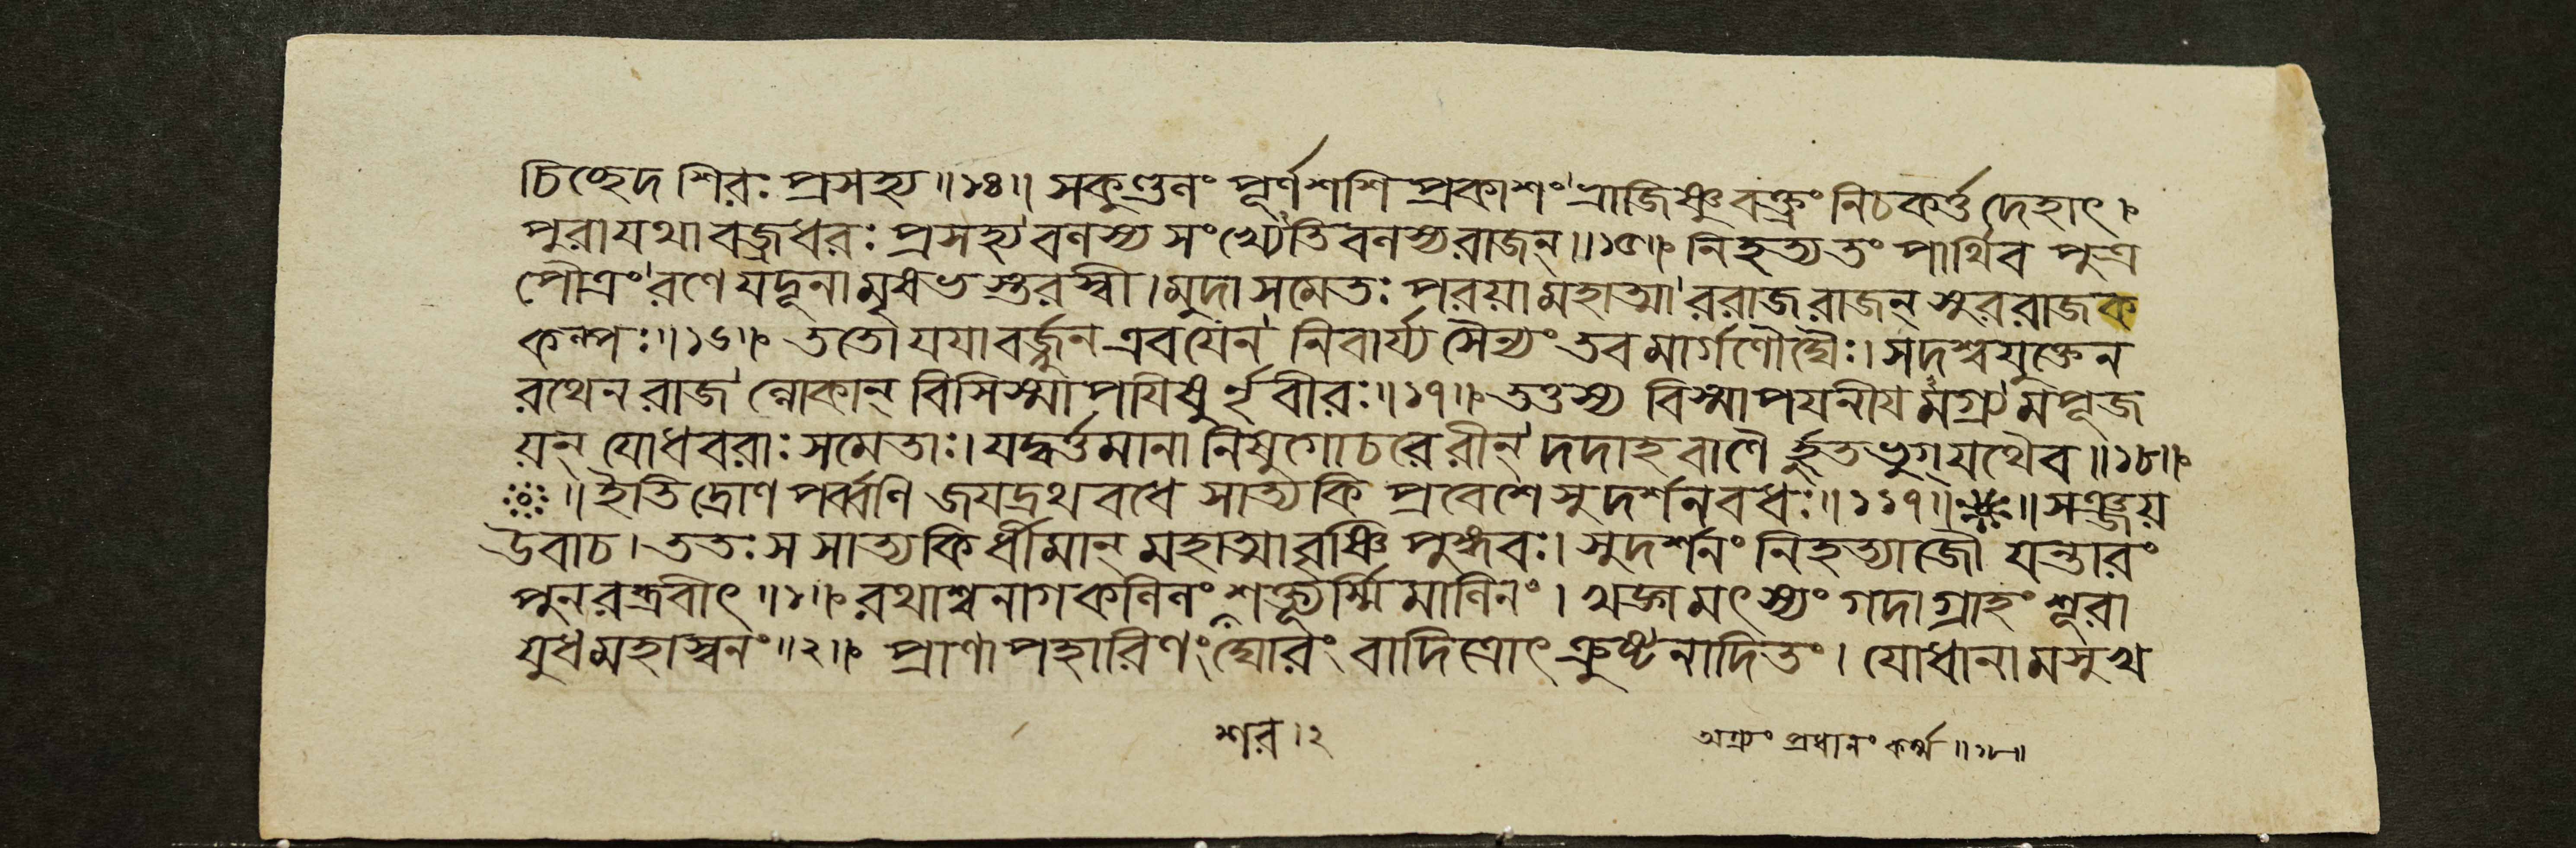 চিচ্ছেদ শিরঃ প্রসহ্য ॥১৪॥ সকুণ্ডলং পূর্ণশশিপ্রকাশং ভ্রাজিষ্ণুবক্ত্রং নিচকর্ত্ত দেহাৎ।
পুরা যথা বজ্রধরঃ প্রসহ্য বলস্য সংখ্যেতিবলস্য রাজন্ ॥১৫॥ নিহত্য তং পার্থিব পুত্র
পৌত্রং রণে যদূনামৃষভস্তরস্বী। মুদা সমেতঃ পরয়া মহাত্মা ররাজ রাজন্ সুররাজক
কল্পঃ॥১৬॥ ততো যযাবর্জ্জুন এব যেন নিবার্য্য সৈন্যং তব মার্গণৌঘৈঃ। সদশ্বযুক্তেন
রথেন রাজন্লোকান্ বিসিস্মাপয়িষুর্নৃবীরঃ॥১৭॥ তত্তস্য বিস্মাপয়নীয়মগ্র্যমপূজ
য়ন্ যোধবরাঃ সমেতাঃ। যদ্বর্ত্তমানানিষুগোচরেরীন্ দদাহ বাণৈর্হুতভুগ্ যথৈব॥১৮॥
॥ ইতি দ্রোণপর্ব্বণি জয়দ্রথবধে সাত্যকি প্রবেশে সুদর্শনবধঃ॥১১৭॥ ॥ সঞ্জয়
উবাচ। ততঃ স সাত্যকির্ধীমান্ মহাত্মা বৃষ্ণিপুঙ্গবঃ। সুদর্শনং নিহত্যাজৌ যন্তারং
পুনরব্রবীৎ॥১॥ রথাশ্বনাগকলিলং শক্ত্যূর্ম্মিমালিনং। খড্গমৎস্যং গদাগ্রাহং শূরা
যুধমহাস্বনং॥২॥ প্রাণাপহারিণং ঘোরং বাদিত্রোৎক্রুষ্টনাদিতং। যোধানামসুখ
শর।২
অগ্র্যং প্রধানং কর্ম্ম॥১৮॥